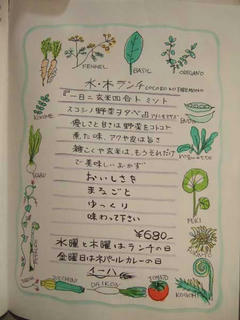 FENNEL
BASIL
OREGANO
水・木ランチ COCORO NO TABEMONO
『一日ニ玄米四合ト ミソト
スコシノ野菜ヲタベ』
優しさと甘さは野菜をコトコト
煮た味、アクや皮は旨さ
雑こくや玄米は、もうそれだけ
で美味しいおかず
おいしさを
まるごと
ゆっくり
味わって下さい
¥680-
水曜と木曜はランチの日
金曜日はネパールカレーの日
イーハ
FUKI
KOGOMI
ZUCCHINI
DAIKON
TOMATO